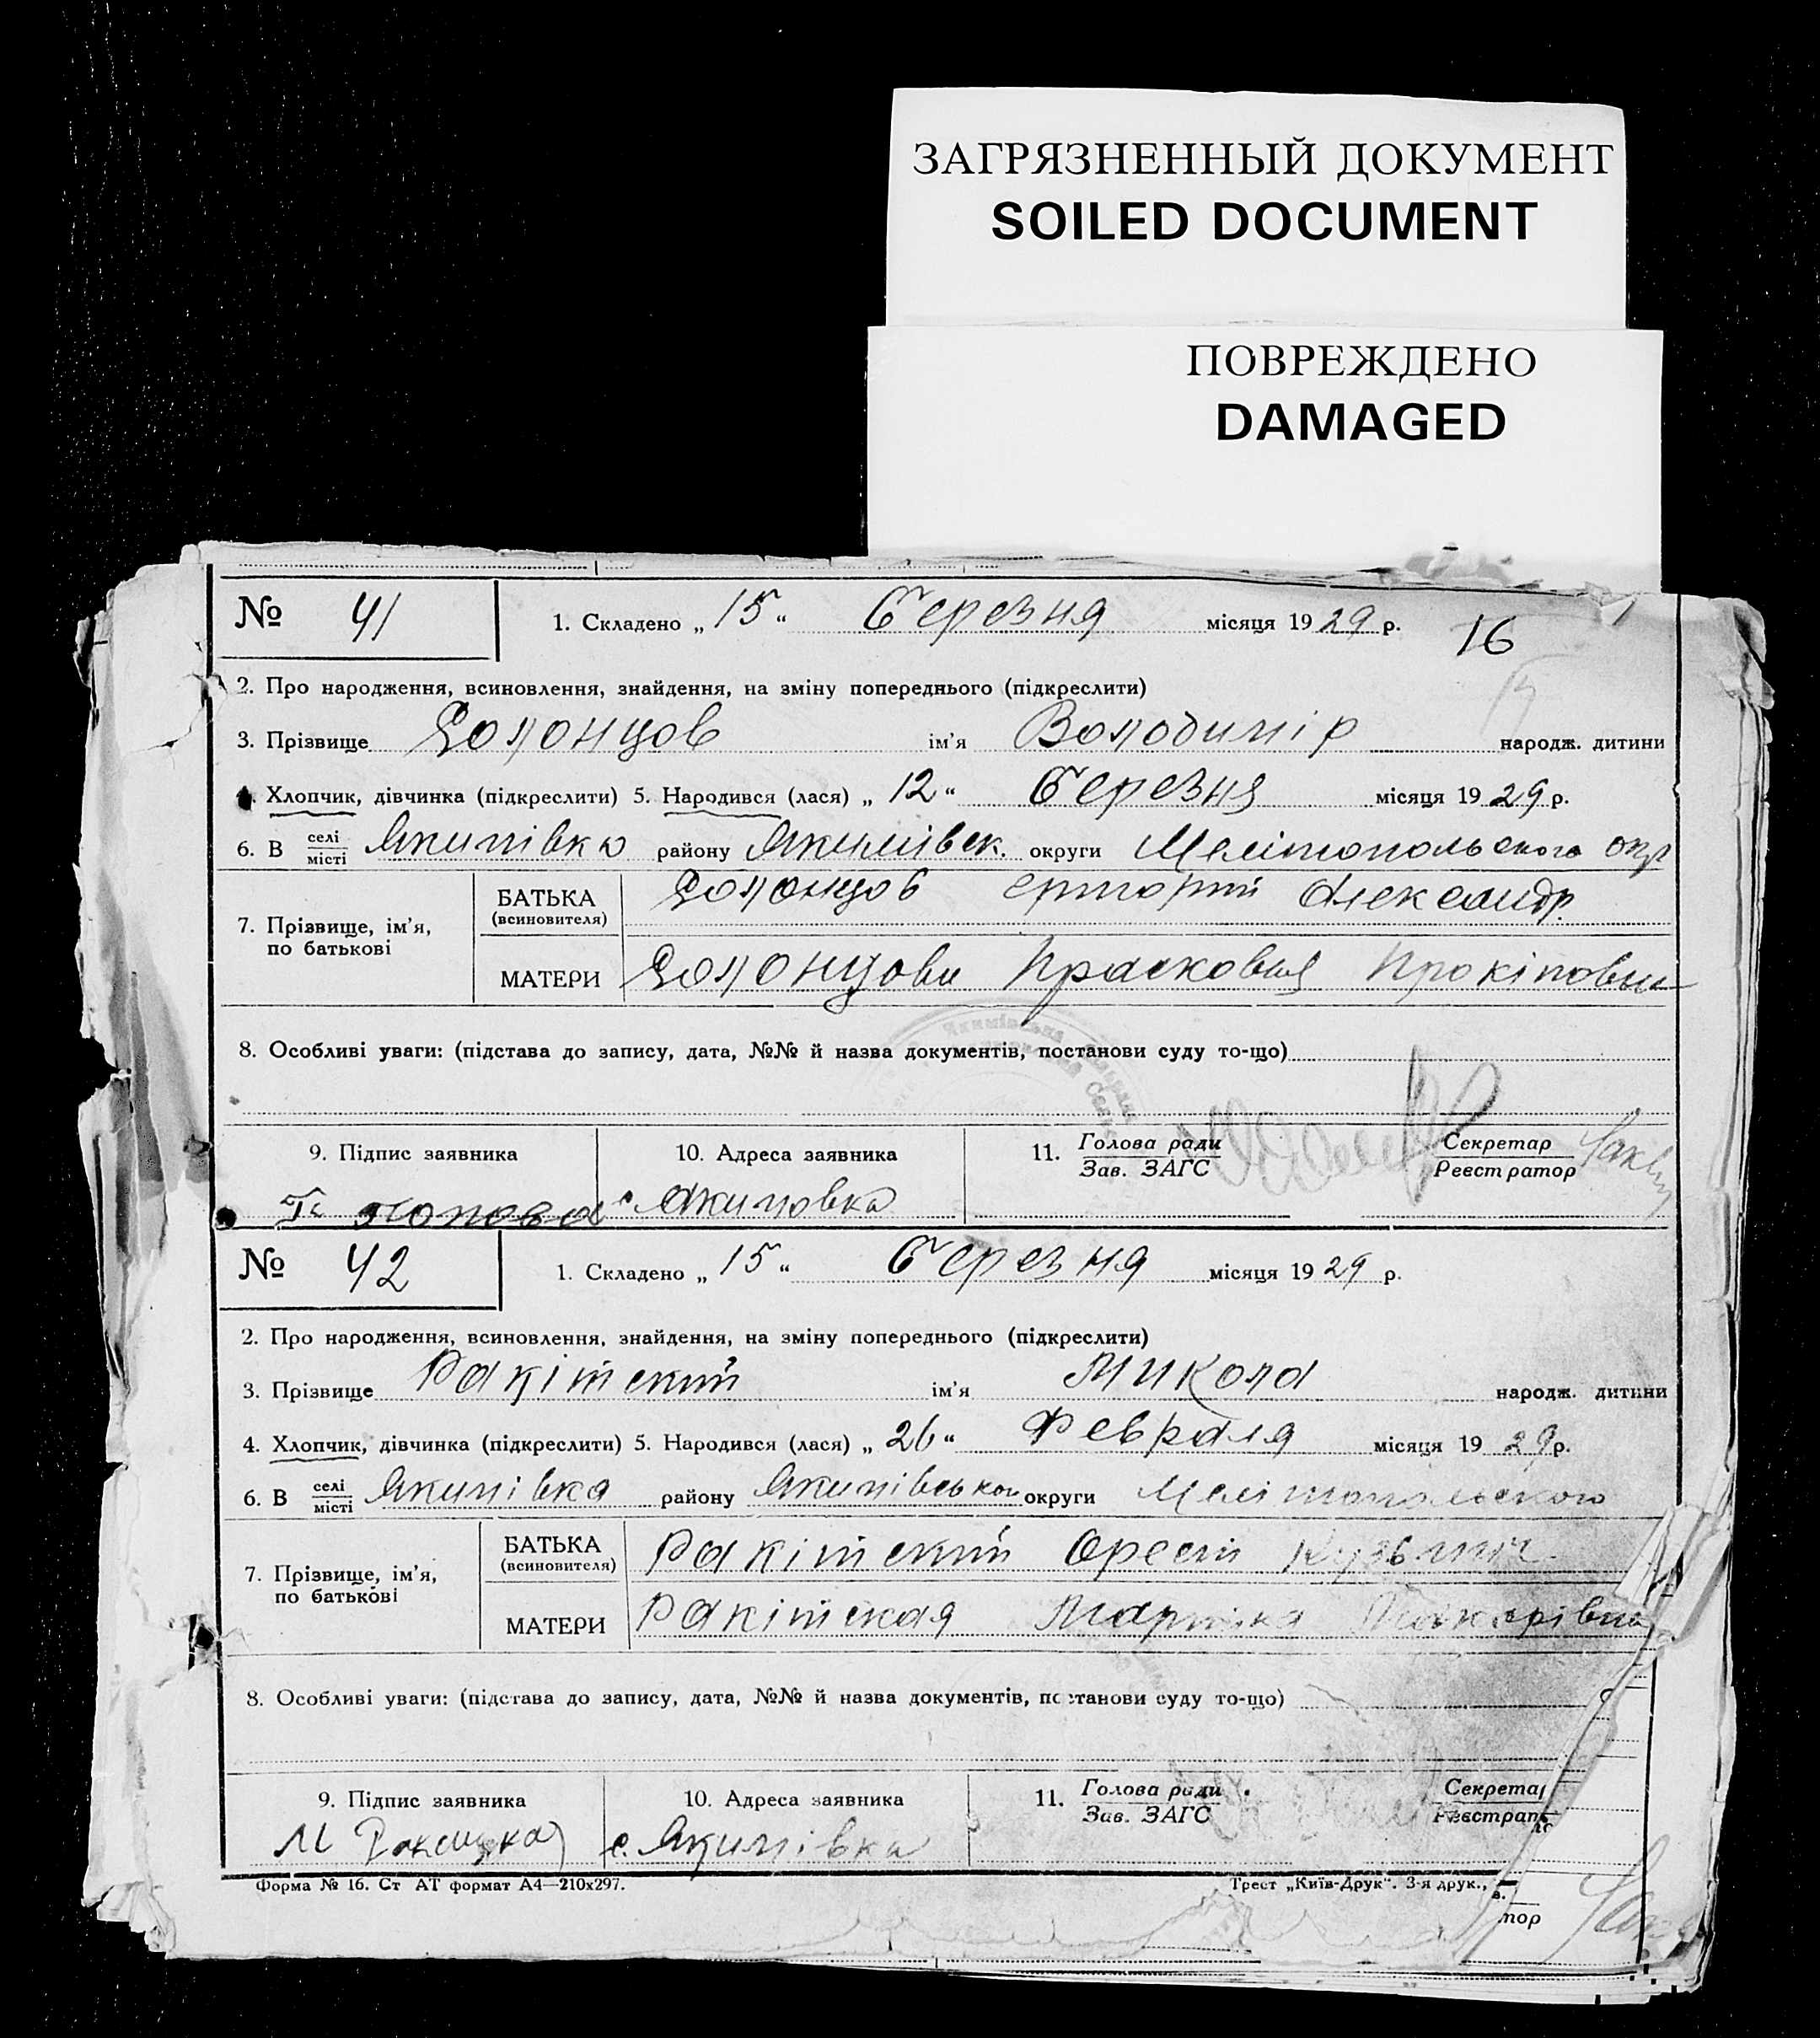 ЗАГРЯЗНЕННЫЙ ДОКУМЕНТ
SOILED DOCUMENT
ПОВРЕЖДЕНО
DAMAGED
№ 41
1. Складено „ 15 “ березня місяця 1929 р.
16
2. Про народження, всиновлення, знайдення, на зміну попереднього (підкреслити)
3. Прізвище Долонцов ім'я Володимір народж. дитини
4. Хлопчик, дівчинка (підкреслити) 5. Народився (лася) „ 12 “ березня місяця 1929 р.
6. В селі/місті Якимівка району Якимівськ. округи Мелітопольского окр
7. Прізвище, ім'я, по батькові
БАТЬКА (всиновителя) Долонцов Александр.
МАТЕРИ Долонцова Прасковия Прокіповна
8. Особливі уваги: (підстава до запису, дата, №№ й назва документів, постанови суду то-що)
9. Підпис заявника
10. Адреса заявника
11. Голова ради/Зав. ЗАГС
Секретар/Реєстратор
Попова
Якимовка
№ 42
1. Складено „ 15 “ березня місяця 1929 р.
2. Про народження, всиновлення, знайдення, на зміну попереднього (підкреслити)
3. Прізвище Ракітский ім'я Микола народж. дитини
4. Хлопчик, дівчинка (підкреслити) 5. Народився (лася) „ 26 “ Февраля місяця 1929 р.
6. В селі/місті Якимівка району Якимівського округи Мелітопольского
7. Прізвище, ім'я, по батькові
БАТЬКА (всиновителя) Ракітский Орест Кузьмич.
МАТЕРИ Ракітская Макарівна
8. Особливі уваги: (підстава до запису, дата, №№ й назва документів, постанови суду то-що)
9. Підпис заявника
10. Адреса заявника
11. Голова ради/Зав. ЗАГС
Секретар/Реєстрат
М
с. Якимівка
Форма № 16. Ст АТ формат А4—210х297.
Трест „Київ-Друк“. 3-я друк.,
тор